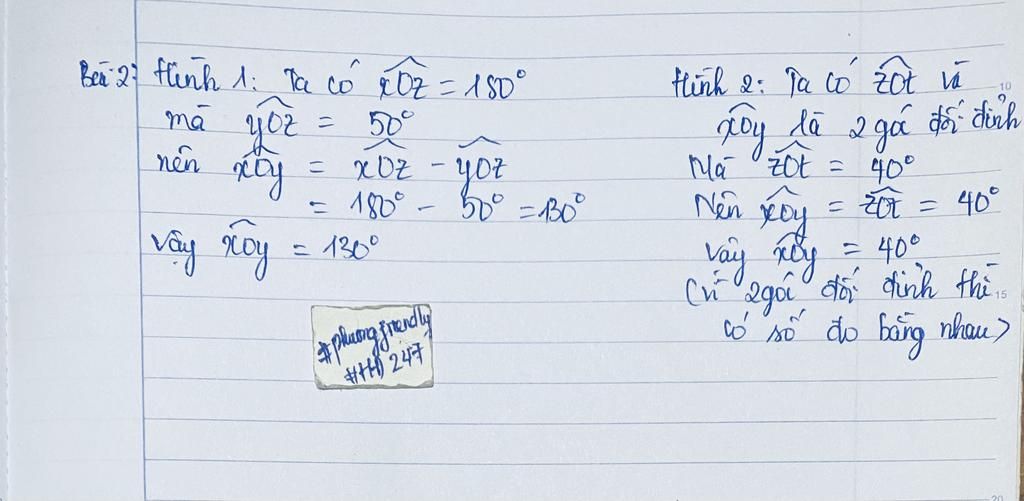 Bài 2: Hình 1: Ta có xOz = 180°
mà yOz = 50°
nên xOy = xOz - yOz
= 180° - 50° = 130°
Vậy xOy = 130°
Hình 2: Ta có zOt và
xOy là 2 góc đối đỉnh
Mà zOt = 40°
Nên xOy = zOt = 40°
Vậy xOy = 40°
(Vì 2 góc đối đỉnh thì
có số đo bằng nhau)
#phuongfriendly
#HĐ 247
10
15
20